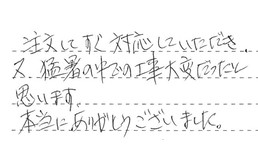 注文してすぐ対応していただき、
又、猛暑の中での工事大変だったと
思います。
本当にありがとうございました。